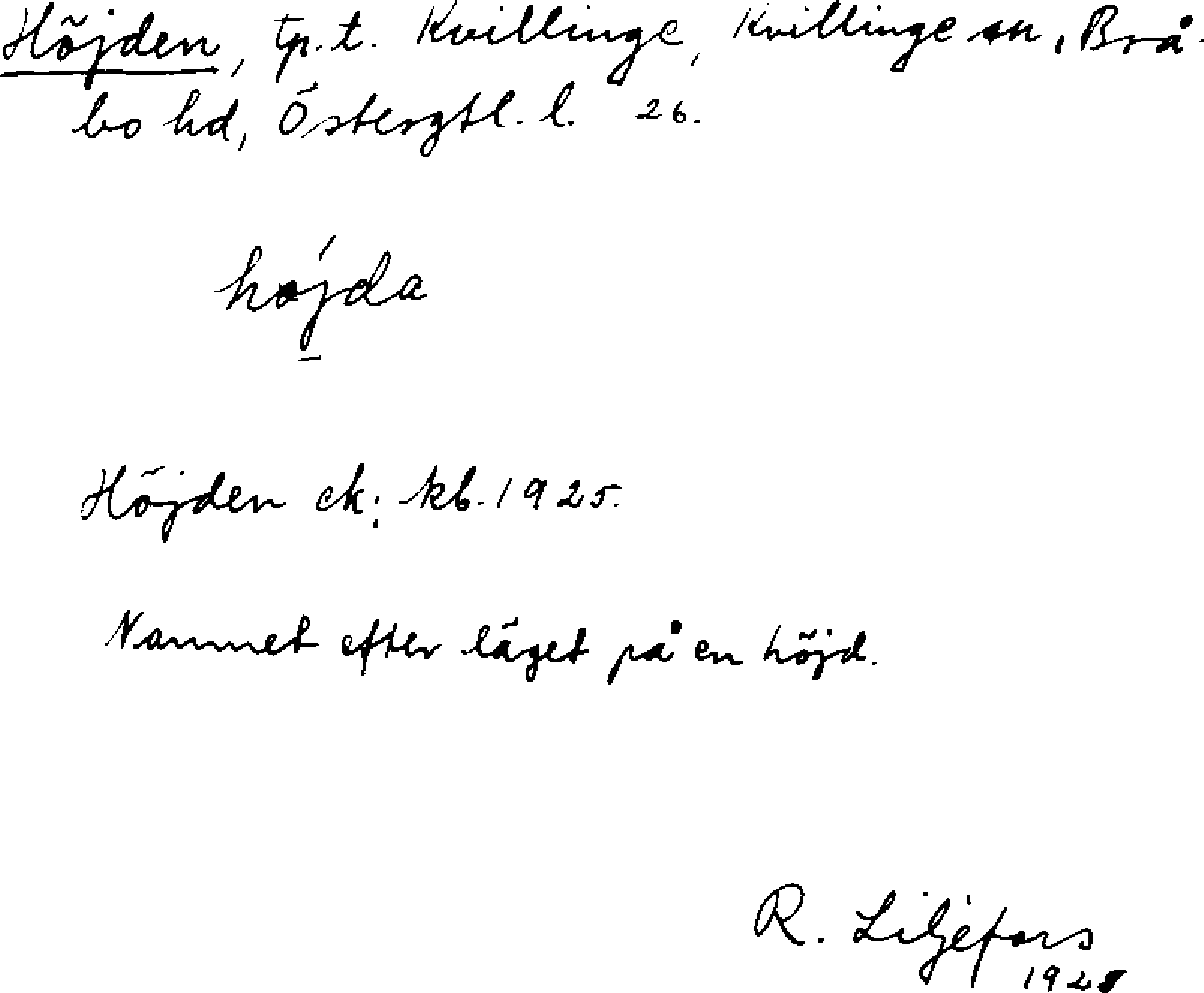 Höjden, tp. t. Kvillinge, Kvillinge sn, Brå-
bo hd, Östergtl. l. 26.
højda
Höjden ek; kb. 1925.
Namnet efter läget på en höjd.
R. Liljefors